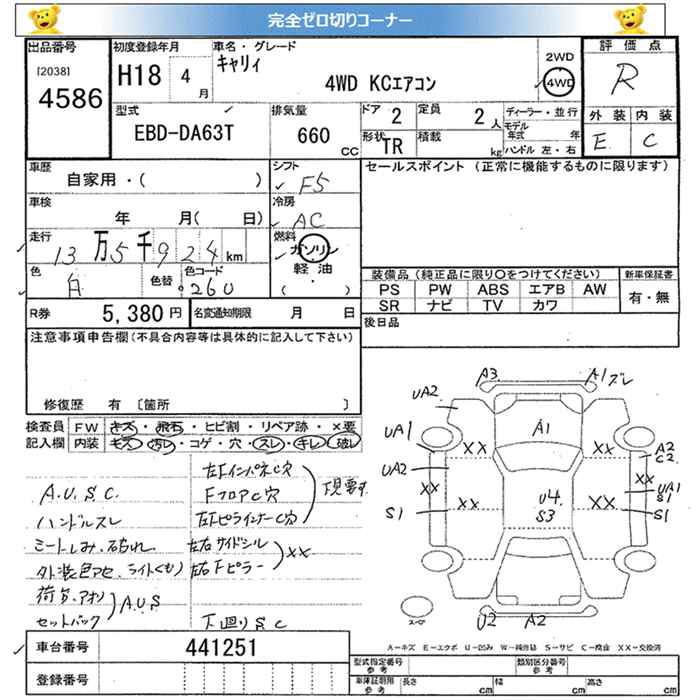 完全ゼロ切りコーナー
出品番号
[2038]
4586
初度登録年月
H18 4月
車名・グレード
キャリィ
4WD KCエアコン
2WD
4WD
評価点
R
外装 内装
E C
型式
EBD-DA63T
排気量
660 CC
ドア 2
定員 2人
形状 TR
積載 kg
ディーラー・並行
モデル年式 年
ハンドル 左・右
車歴
自家用・( )
シフト
F5
セールスポイント (正常に機能するものに限ります)
車検
年 月( 日)
冷房
AC
走行
13万5千924km
燃料
ガソリン
軽油
( )
色
白
色替
色コード
260
装備品 (純正品に限り○をつけてください)
新車保証書
PS PW ABS エアB AW
SR ナビ TV カワ
有・無
R券 5,380円
名変通知期限 月 日
後日品
注意事項申告欄(不具合内容等は具体的に記入して下さい)
修復歴 有 [箇所 ]
検査員記入欄
FW キズ・飛石・ヒビ割・リペア跡・×要
内装 キズ・汚レ・コゲ・穴・スレ・キレ・破レ
A.U.S.C.
ハンドルスレ
シートしみ、
外装色アセ、ライトくもり
荷台、アオリ
セットバック
A.U.S
左Fインパネ C穴
FフロアC穴
左Fピラインナー C穴
現要す
左右サイドシル
左右Fピラー
××
下廻りSC
A3
A1ズレ
UA2
A1
UA1
XX
XX
A2
C2
UA2
XX
XX
U4
S3
XX
XX
UA1
S1
S1
S1
U2
A2
スペア
A-キズ E-エクボ U-凹み W-補修跡 S-サビ C-腐食 XX-交換済
車台番号 441251
登録番号
型式指定番号 参考
類別区分番号 参考
車庫証明用 参考
長さ cm
幅 cm
高さ cm